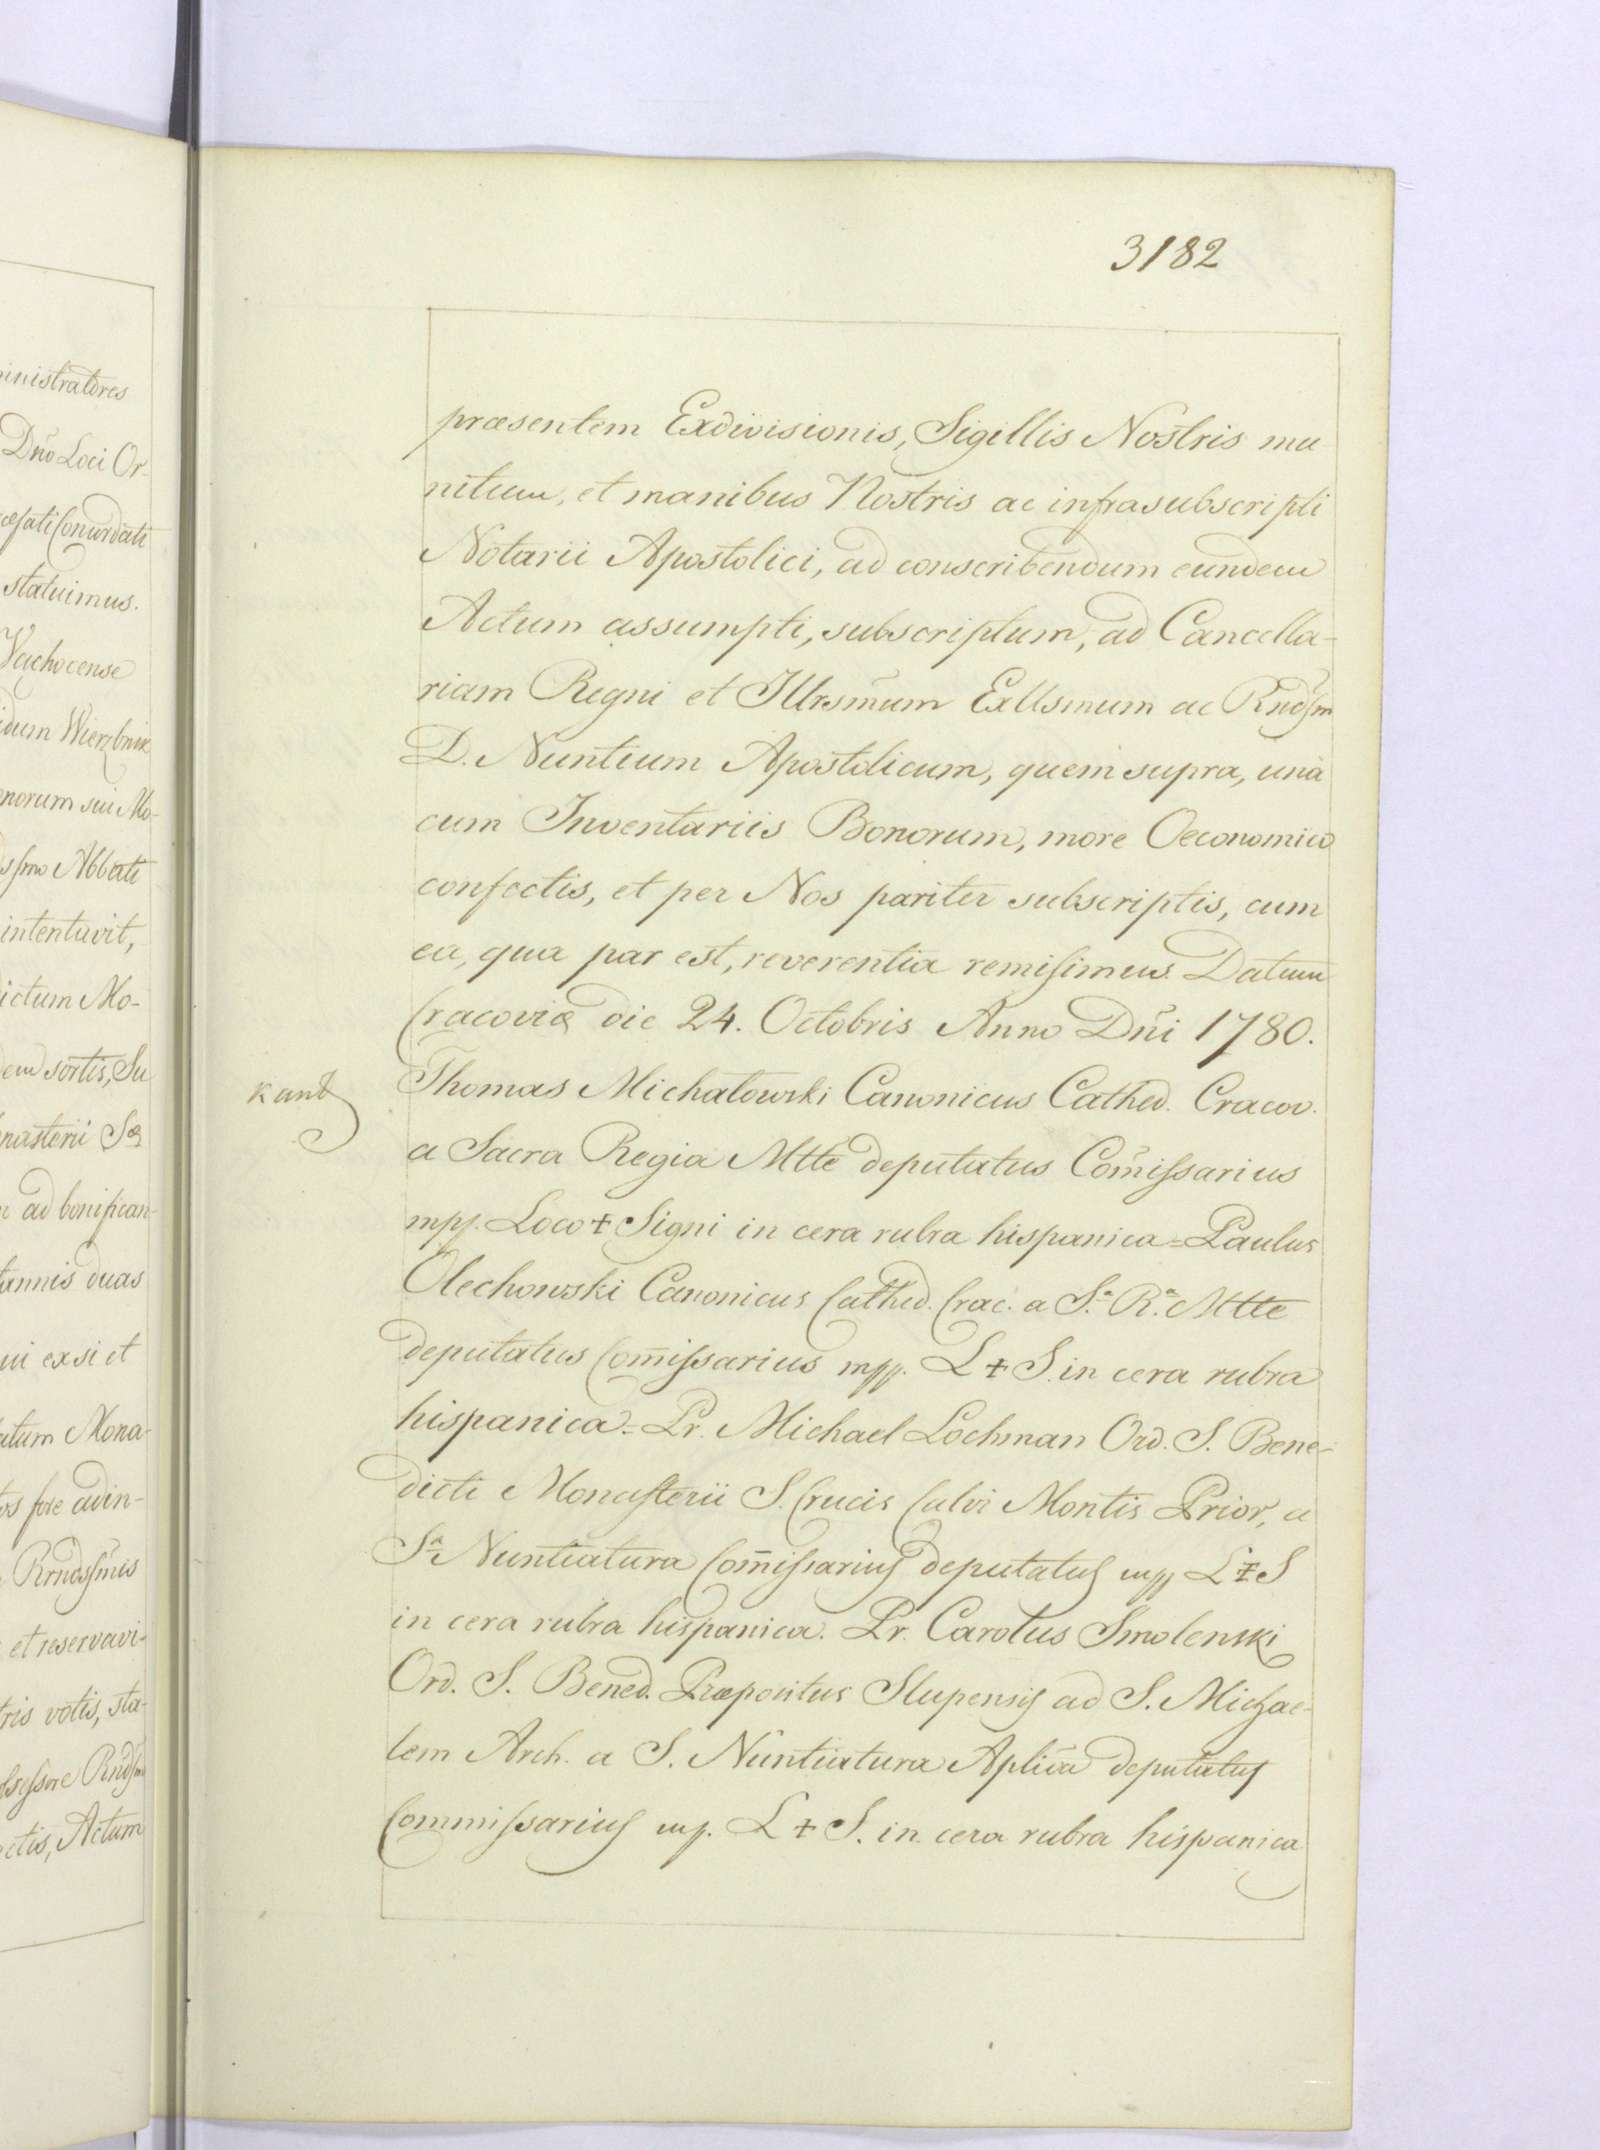 3182
præsentem Exdivisionis, Sigillis Nostris mu
nitum, et manibus Nostris ac infrasubscripti
Notarii Apostolici, ad conscribendum eundem
Actum assumpti, subscriptum, ad Cancella-
riam Regni et Illrsmum Exllsmum ac Rndsm
D. Nuntium Apostolicum, quem supra, una
cum Inventariis Bonorum, more Oeconomico
confectis, et per Nos pariter subscriptis, cum
ea, qua par est, reverentia remisimus. Datum
Cracoviæ die 24. Octobris Anno Dni 1780.
Thomas Michałowski Canonicus Cathed. Cracov.
a Sacra Regia Mtte deputatus Comissarius
mpp. Loco ‡ Signi in cera rubra hispanica = Paulus
Olechowski Canonicus Cathed. Crac. a S.a R.a Mtte
deputatus Comissarius mpp. L ‡ S. in cera rubra
hispanica = Pr. Michael Lochman Ord. S. Bene-
dicti Monasterii S. Crucis Calvi Montis Prior, a
Sa Nuntiatura Comissarius deputatus mpp L ‡ S
in cera rubra hispanica. Pr. Carolus Smolenski
Ord. S. Bened. Præpositus Slupensis ad S. Michae-
lem Arch. a S. Nuntiatura Aplica deputatus
Commissarius mp. L ‡ S. in cera rubra hispanica
ministratores
Dno Loci Or-
Conwrdati
statuimus.
Wachocense
Wierzbnik
norum sui Mo-
Abbati
intentavit,
dictum Mo-
sortis, Su
nasterii
ad bonifican-
annis duas
ui ex si et
atum Mona-
os fore adin-
Rrndssmis
et reservavi-
tris votis, sta-
Actum